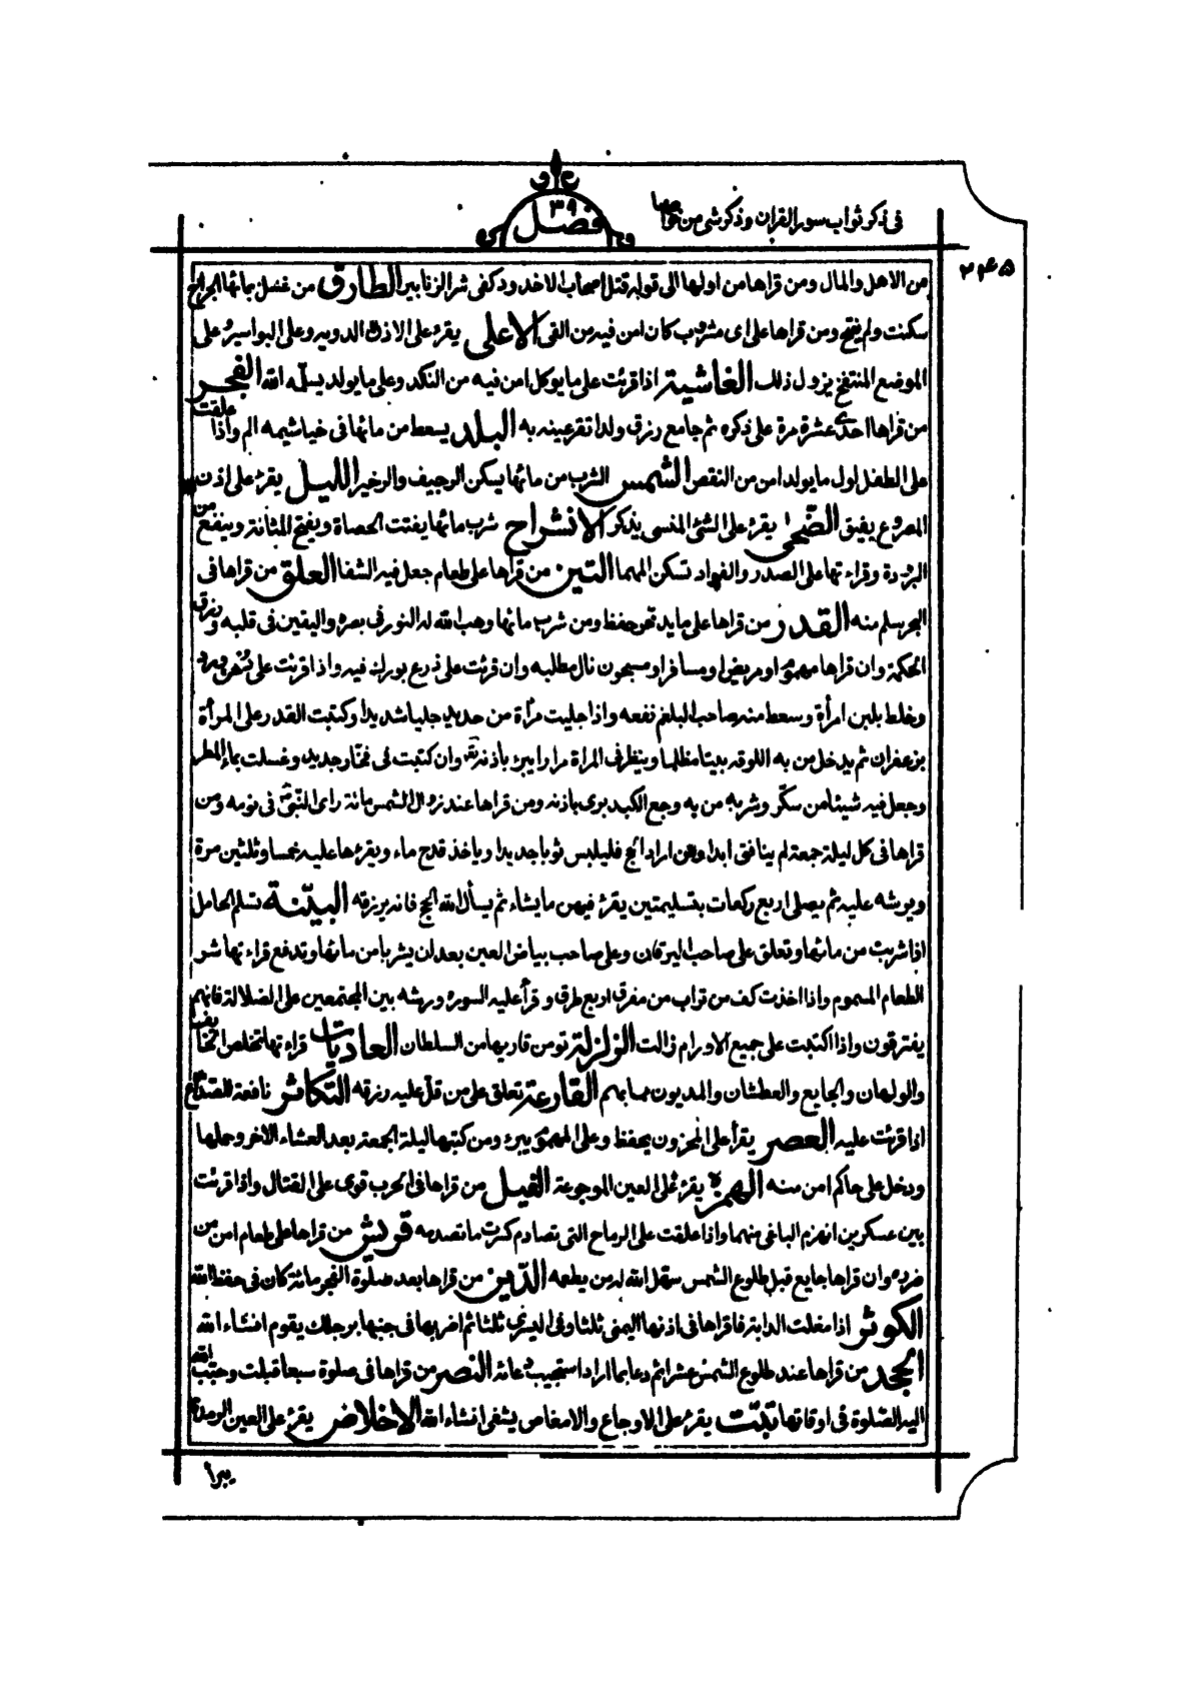 في ذكر ثواب سور القران وذكر شئ من خواصها
فصل ٣٩
٢٤٥
من الاهل والمال ومن قراها من اولها الى قوله قتل اصحاب الاخدود كفى شر الزنابير الطارق من غسل بمائها الجراح
سكنت ولم يفتح ومن قراها على اى مشروب كان امن فيه من القى الاعلى يقرء على الاذن الدويه وعلى البواسير وعلى
الموضع المنتفخ يزول ذلك الغاشية اذا قرئت على ما يوكل امن فيه من النكد وعلى ما يولد يسلّمه الله الفجر
من قراها احدى عشرة مرة على ذكره ثم جامع رزق ولدا تقر عينه به البلد يسعط من مائها في خياشيمه الم واذا علقت
على الطفل اول ما يولد امن من النقص الشمس الشرب من مائها يسكن الوجيف والزحير الليل يقرء على اذن
المصروع يفيق الضّحى يقرء على الشئ المنسى يذكر الانشراح شرب مائها يفتت الحصاة ويفتح المثانة وينفع من
البرودة وقراءتها على الصدر والفؤاد تسكن المهما التين من قراها على طعام جعل فيه الشفا العلق من قراها في
البحر سلم منه القدر من قراها على ما يدخر حفظ ومن شرب مائها وهب الله له النور في بصره واليقين في قلبه ورزق
الحكمة وان قراها مهموم او مريض او مسافر او مسجون نال مطلبه وان قرئت على زرع بورك فيه واذا قرئت على
وخلط بلبن امرأة وسعط منه صاحب البلغم نفعه واذا جليت مرأة من حديد جليا شديدا وكتبت القدر على المرأة
بزعفران ثم يدخل من به اللوقه بيتا مظلما وينظر في المراة مرارا يبرئ باذنه تع وان كتبت في فخّار جديد وغسلت بماء المطر
وجعل فيه شيئا من سكّر وشربه من به وجع الكبد برى باذنه ومن قراها عند زوال الشمس مائة راى النّبيّ في نومه ومن
قراها في كل ليلة جمعة لم ينافق ابدا ومن اراد الحج فليلبس ثوبا جديدا وياخذ قدح ماء ويقرءها عليه خمسا وثلثين مرة
ويرشه عليه ثم يصلى اربع ركعات بتسليمتين يقرء فيهن ما يشاء ثم يسأل الله الحج فانه يرزقه البيّنة تسلم الحامل
اذا شربت من مائها وتعلق على صاحب اليرقان وعلى صاحب بياض العين بعد ان يشربا من مائها وتدفع قراءتها شر
الطعام المسموم واذا اخذت كف من تراب من مفرق اربع طرق وقرأ عليه السورة ورشه بين المجتمعين على الضلالة فانهم
يفترقون واذا اكتبت على جميع الاورام زالت الزلزلة تومن قاريها من السلطان العاديات قراءتها تخلص الخائف
والولهان والجايع والعطشان والمديون مما بهم القارعة تعلق على من قلّ عليه رزقه التكاثر نافعة للصداع
اذا قرئت عليه العصر يقرأ على المحزون يحفظ وعلى المهموم يبرئ ومن كتبها ليلة الجمعة بعد العشاء الاخر وحملها
ودخل على حاكم امن منه الهمزة يقرء على العين الموجوعة الفيل من قراها في الحرب قوى على القتال واذا قرئت
بين عسكرين انهزم الباغى منهما واذا علقت على الرماح التى تصادم كسرت ما تصدمه قريش من قراها على طعام امن من
ضرره وان قراها جايع قبل طلوع الشمس سهّل الله له من يطعمه الدّين من قراها بعد صلوة الفجر مائة كان في حفظ الله
الكوثر اذا مغلت الدابة فاقراها في اذنها اليمنى ثلثا وفي اليسرى ثلثا ثم اضربها في جنبها برجلك يقوم انشاء الله
الجحد من قراها عند طلوع الشمس عشرا ثم دعا بما اراد استجيب دعائه النصر من قراها في صلوة سبعا قبلت وحبّب الله
اليه الصّلوة في اوقاتها تبّت يقرء على الاوجاع والامغاص يشفى انشاء الله الاخلاص يقرء على العين الرمدة
يبرأ